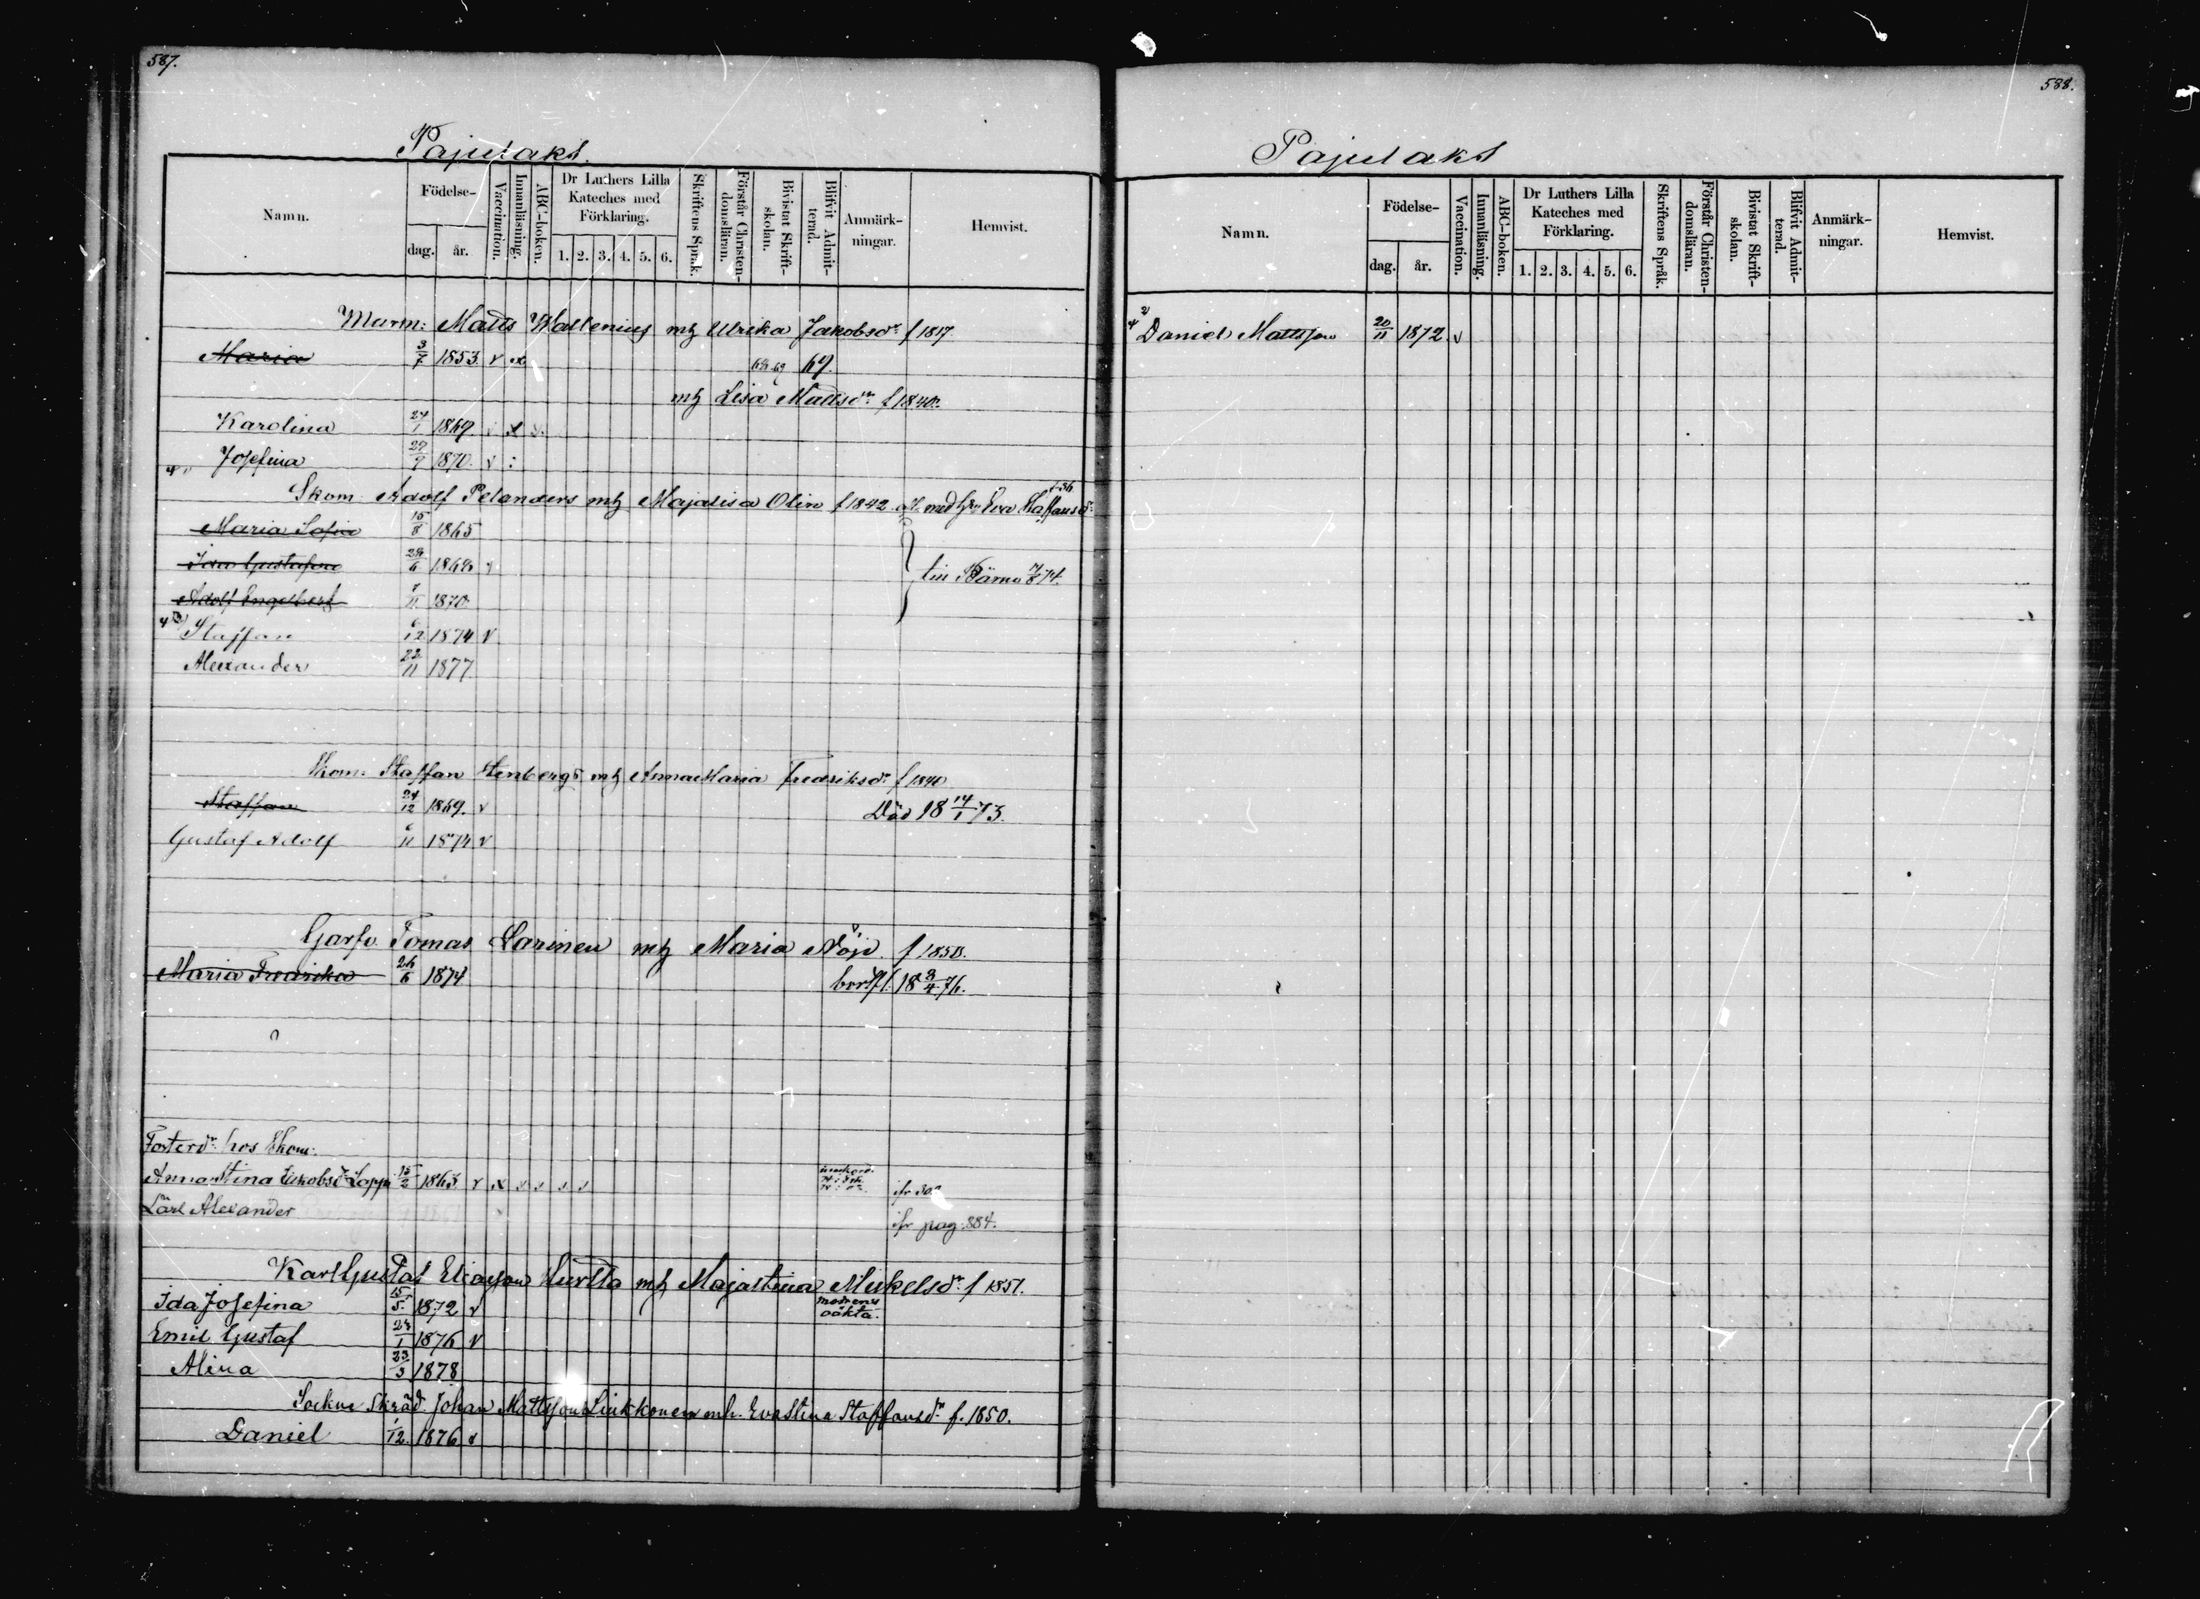 587.
Pajulaks.
Namn.
Födelse-
dag.
år.
Vaccination.
Innanläsning.
ABC-boken.
Dr Luthers Lilla Kateches med Förklaring.
1. 2. 3. 4. 5. 6.
Skriftens Språk.
Förstår Christendomsläran.
Bivistat Skriftskolan.
Blifvit Admitterad.
Anmärkningar.
Hemvist.
Murm: Matts Wallenius mh Ulrika Jakobsdr f 1817
Maria 3/7 1853. v x 68 69 69.
mh Lisa Mattsdr f 1840.
Karolina 24/1 1869. v x v.
Josefina 29/9 1870. v :
Skom Adolf Pelanders mh Majalisa Olin f 1842 med Eva Staffansdr
Maria Sofia 15/8 1865
Ida Gustafva 28/6 1868 v
till Kärna 874.
Adolf Engelbert 7/11 1870
Staffan 6/12 1874 v
Alexander 22/11 1877
Skom. Staffan Stenbergs mh Anna Maria Fredriksdr f 1840
Staffan 24/12 1869. v Död 18 14/1 73.
Gustaf Adolf 6/11 1874 v
Garfv. Tomas Larinen mh Maria Nöjd f 1850.
Maria Fredrika 26/6 1874 bortfl. 18 3/4 76.
Fosterdr hos Skom:
Anna Stina Jakobsdr Lopp 15/2 1863 v x v v v v
Karl Alexander jfr pag. 884.
Karl Gustaf Eliasson Hurtta mh Maja Stina Mikelsdr f 1851.
Ida Josefina 15/5 1872 v modrens oäkta.
Emil Gustaf 28/1 1876 v
Alina 23/3 1878
Sockne Skräd. Johan Mattsson Liukkonen mh. Eva Stina Staffansdr f. 1850.
Daniel 1/12. 1876 v
588.
Pajulaks
Namn.
Födelse-
dag.
år.
Vaccination.
Innanläsning.
ABC-boken.
Dr Luthers Lilla Kateches med Förklaring.
1. 2. 3. 4. 5. 6.
Skriftens Språk.
Förstår Christendomsläran.
Bivistat Skriftskolan.
Blifvit Admitterad.
Anmärkningar.
Hemvist.
Daniel Mattsson 20/11 1872. v